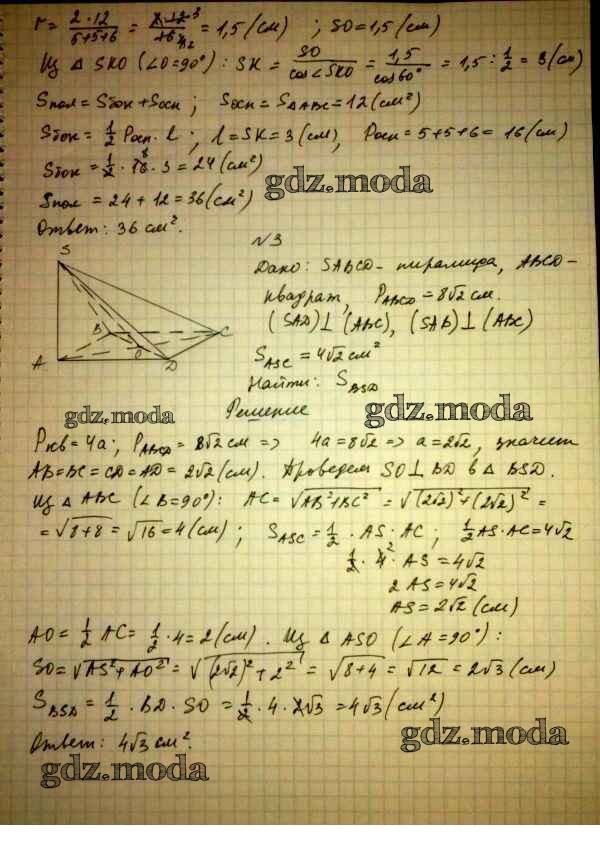 r = 2·12/(5+5+6) = 2·12/16 = 1,5 (см) ; SO = 1,5 (см)
Из △ SKO (∠O=90°) : SK = SO/cos∠SKO = 1,5/cos60° = 1,5 : 1/2 = 3 (см)
Sпол = Sбок + Sосн ; Sосн = S△ABC = 12 (см²)
Sбок = 1/2 Pосн · l ; l = SK = 3 (см), Pосн = 5+5+6 = 16 (см)
Sбок = 1/2 · 16 · 3 = 24 (см²)
gdz.moda
Sпол = 24 + 12 = 36 (см²)
Ответ: 36 см².
N3
S
A
B
C
D
O
Дано: SABCD - пирамида, ABCD -
квадрат, PABCD = 8√2 см.
(SAD) ⊥ (ABC), (SAB) ⊥ (ABC)
SASC = 4√2 см²
Найти: SBSD
gdz.moda
gdz.moda
Решение
Pкв = 4a ; PABCD = 8√2 см => 4a = 8√2 => a = 2√2, значит
AB=BC=CD=AD= 2√2 (см). Проведем SO ⊥ BD в △ BSD.
Из △ ABC (∠B=90°): AC = √AB²+BC² = √(2√2)²+(2√2)² =
= √8+8 = √16 = 4 (см) ; SASC = 1/2 · AS · AC ; 1/2 AS · AC = 4√2
1/2 · 4 · AS = 4√2
2 AS = 4√2
AS = 2√2 (см)
AO = 1/2 AC = 1/2 · 4 = 2 (см) . Из △ ASO (∠A=90°) :
SO = √AS²+AO² = √(2√2)²+2² = √8+4 = √12 = 2√3 (см)
SBSD = 1/2 · BD · SO = 1/2 · 4 · 2√3 = 4√3 (см²)
Ответ: 4√3 см².
gdz.moda
gdz.moda